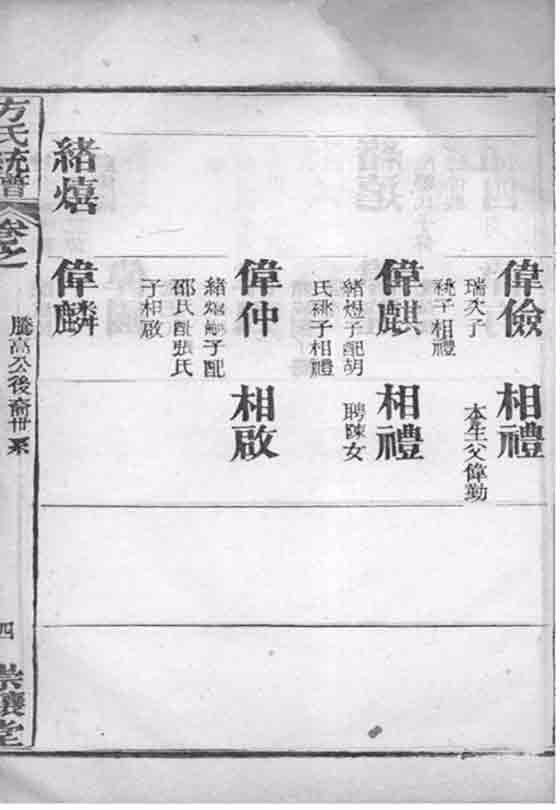 偉儉
瑞次子
祧子相禮
相禮
本生父偉勤
偉麒
緒煜子配胡
氏祧子相禮
相禮
聘陳女
偉仲
緒熺嗣子配
邵氏配張氏
子相啟
相啟
緒熺
偉麟
方氏統譜
卷之
騰高公後裔世系
四
崇讓堂